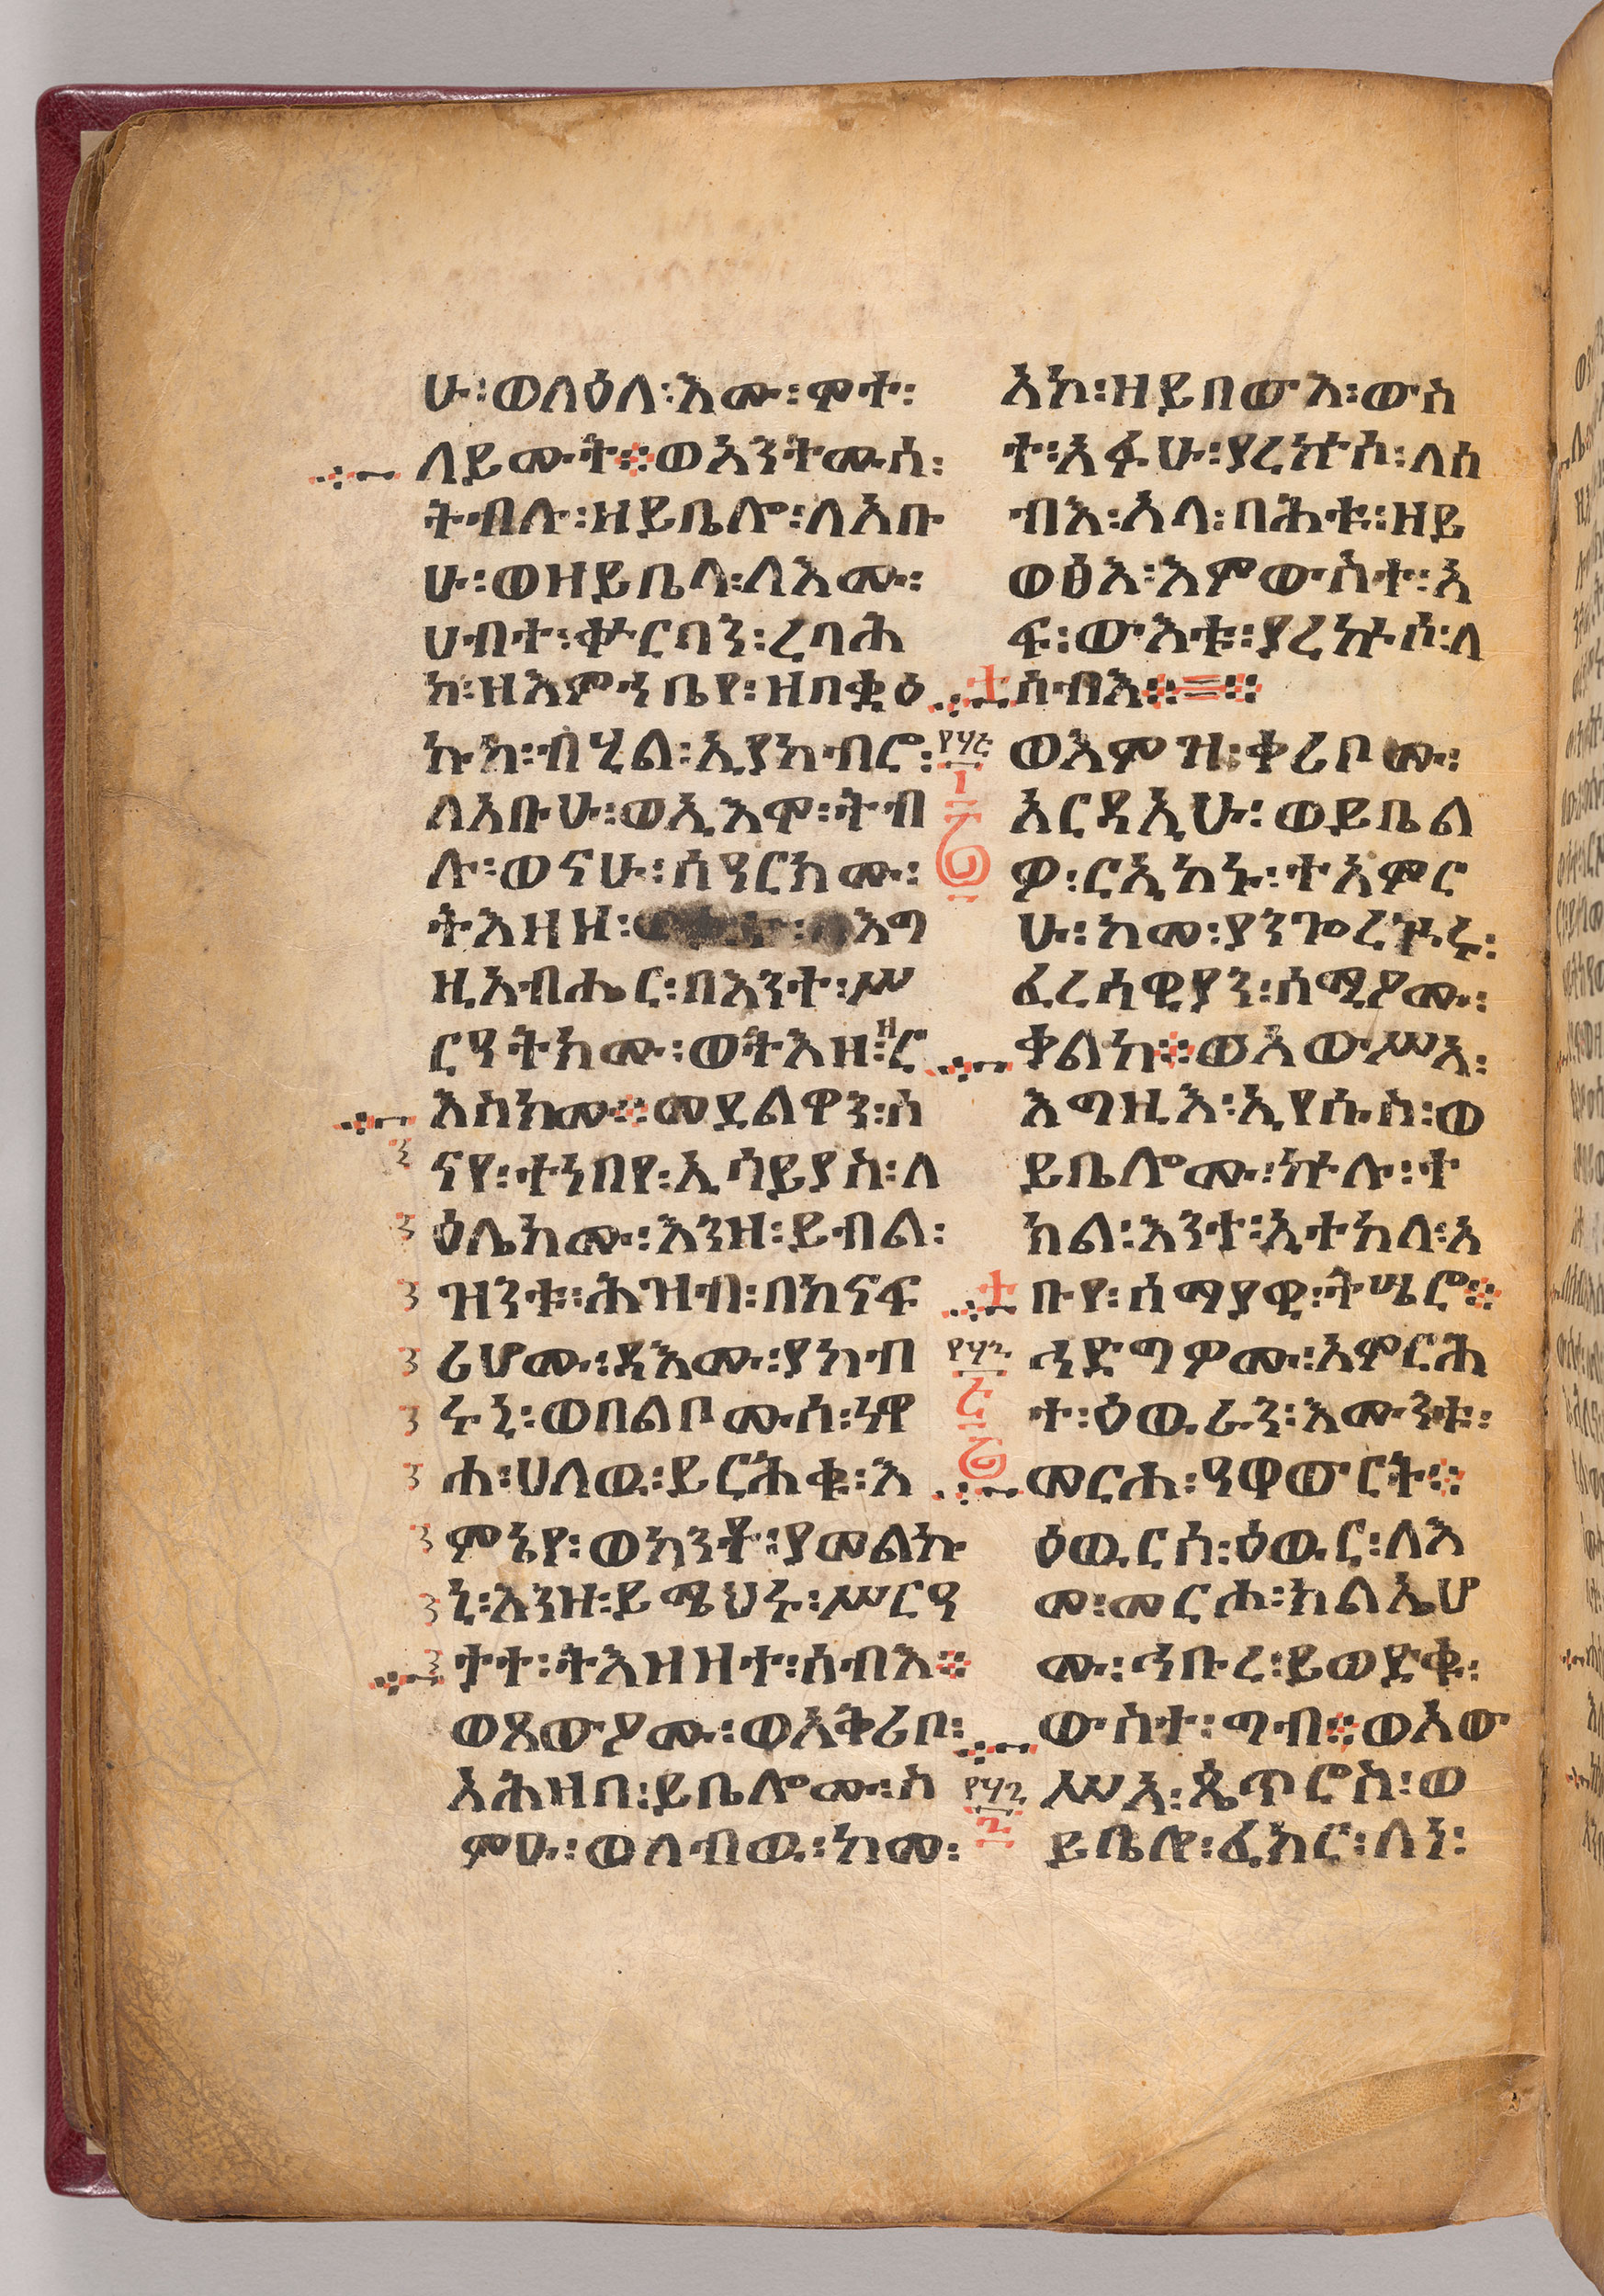 ሁ፡ወለዕለ፡እሙ፡ሞተ፡
ለይሙት፨ወአንትሙሰ፡
ትብሉ፡ዘይቤሎ፡ለአቡ
ሁ፡ወዘይቤላ፡ለእሙ፡
ሀብተ፡ቍርባን፡ረባሕ
ከ፡ዘእምኀቤየ፡ዘበቋዕ
ኩከ፡ብሂል፡ኢያከብሮ፡
ለአቡሁ፡ወኢእሞ፡ትብ
ሉ፡ወናሁ፡ሰዓርክሙ፡
ትእዘዘ፡እግ
ዚአብሔር፡በእንተ፡ሥ
ርዓትክሙ፡ወትእዘ፡ዘረ
እስክሙ፨መደልዋን፡ሠ
ናየ፡ተነበየ፡ኢሳይያስ፡ለ
ዕሌክሙ፡እንዘ፡ይብል፡
ዝንቱ፡ሕዝብ፡በከናፍ
ሪሆሙ፡ዳእሙ፡ያከብ
ሩኒ፡ወበልቦሙሰ፡ነዋ
ሐ፡ሀለዉ፡ይርሕቁ፡እ
ምኔየ፡ወከንቶ፡ያመልኩ
ኒ፡እንዘ፡ይሜህሩ፡ሥርዓ
ተ፡ትእዘዘተ፡ሰብእ፨
ወጸውዖሙ፡ወአቅሪቦ፡
አሕዘበ፡ይቤሎሙ፡ስ
ምዑ፡ወለብዉ፡ከመ፡
አኮ፡ዘይበውእ፡ውስ
ተ፡አፉሁ፡ያረኵሶ፡ለሰ
ብእ፡አላ፡ባሕቱ፡ዘይ
ወፅእ፡እምውስተ፡አ
ፍ፡ውእቱ፡ያረኵሶ፡ለ
ሰብእ፨=፨
ወእምዝ፡ቀሪቦሙ፡
አርዳኢሁ፡ወይቤል
ዎ፡ርኢከኑ፡ተአምር
ሁ፡ከመ፡ያንጐረጕሩ፡
ፈረሳዊያን፡ሰሚዖሙ፡
ቀልከ፨ወአውሥአ፡
እግዚእ፡ኢየሱስ፡ወ
ይቤሎሙ፡ኵሉ፡ተ
ክል፡እንተ፡ኢተከላ፡አ
ቡየ፡ሰማያዊ፡ትሤሮ፨
ኅድግዎሙ፡አምርሕ
ተ፡ዕዉራን፡እሙንቱ፡
መርሐ፡ዓዋውርት፨
ዕዉርሰ፡ዕዉር፡ለእ
መ፡መርሐ፡ክልኤሆ
ሙ፡ኅቡረ፡ይወድቁ፡
ውስተ፡ግብ፨ወአው
ሥአ፡ጴጥሮስ፡ወ
ይቤሎ፡ፈክር፡ለነ፡